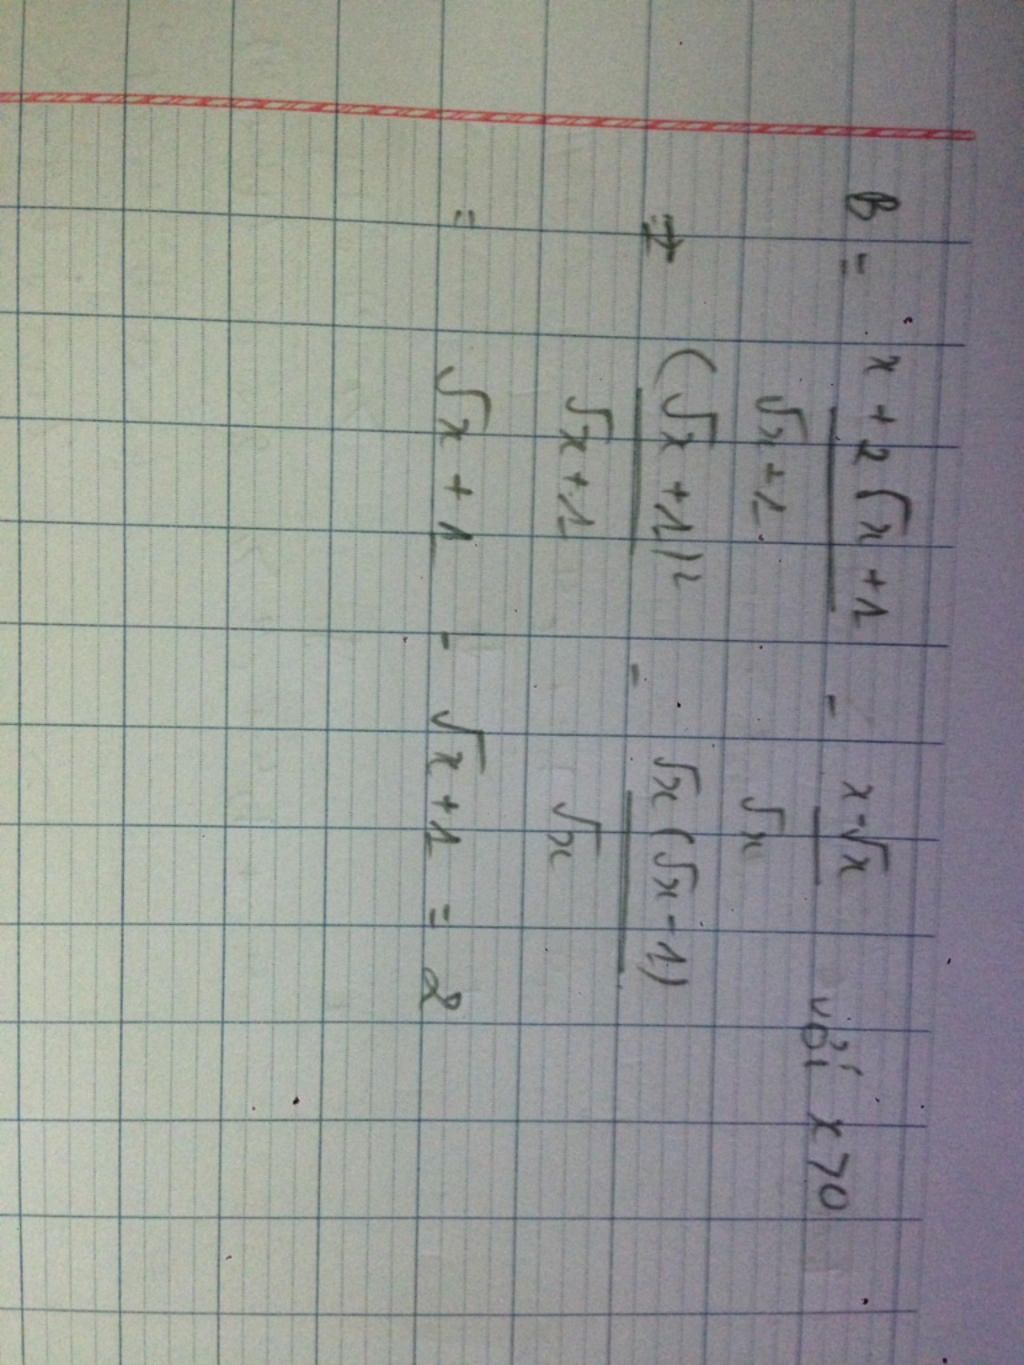 B = \frac{x + 2\sqrt{x} + 1}{\sqrt{x} + 1} - \frac{x - \sqrt{x}}{\sqrt{x}} với x > 0
= \frac{(\sqrt{x} + 1)^2}{\sqrt{x} + 1} - \frac{\sqrt{x}(\sqrt{x} - 1)}{\sqrt{x}}
= \sqrt{x} + 1 - \sqrt{x} + 1 = 2